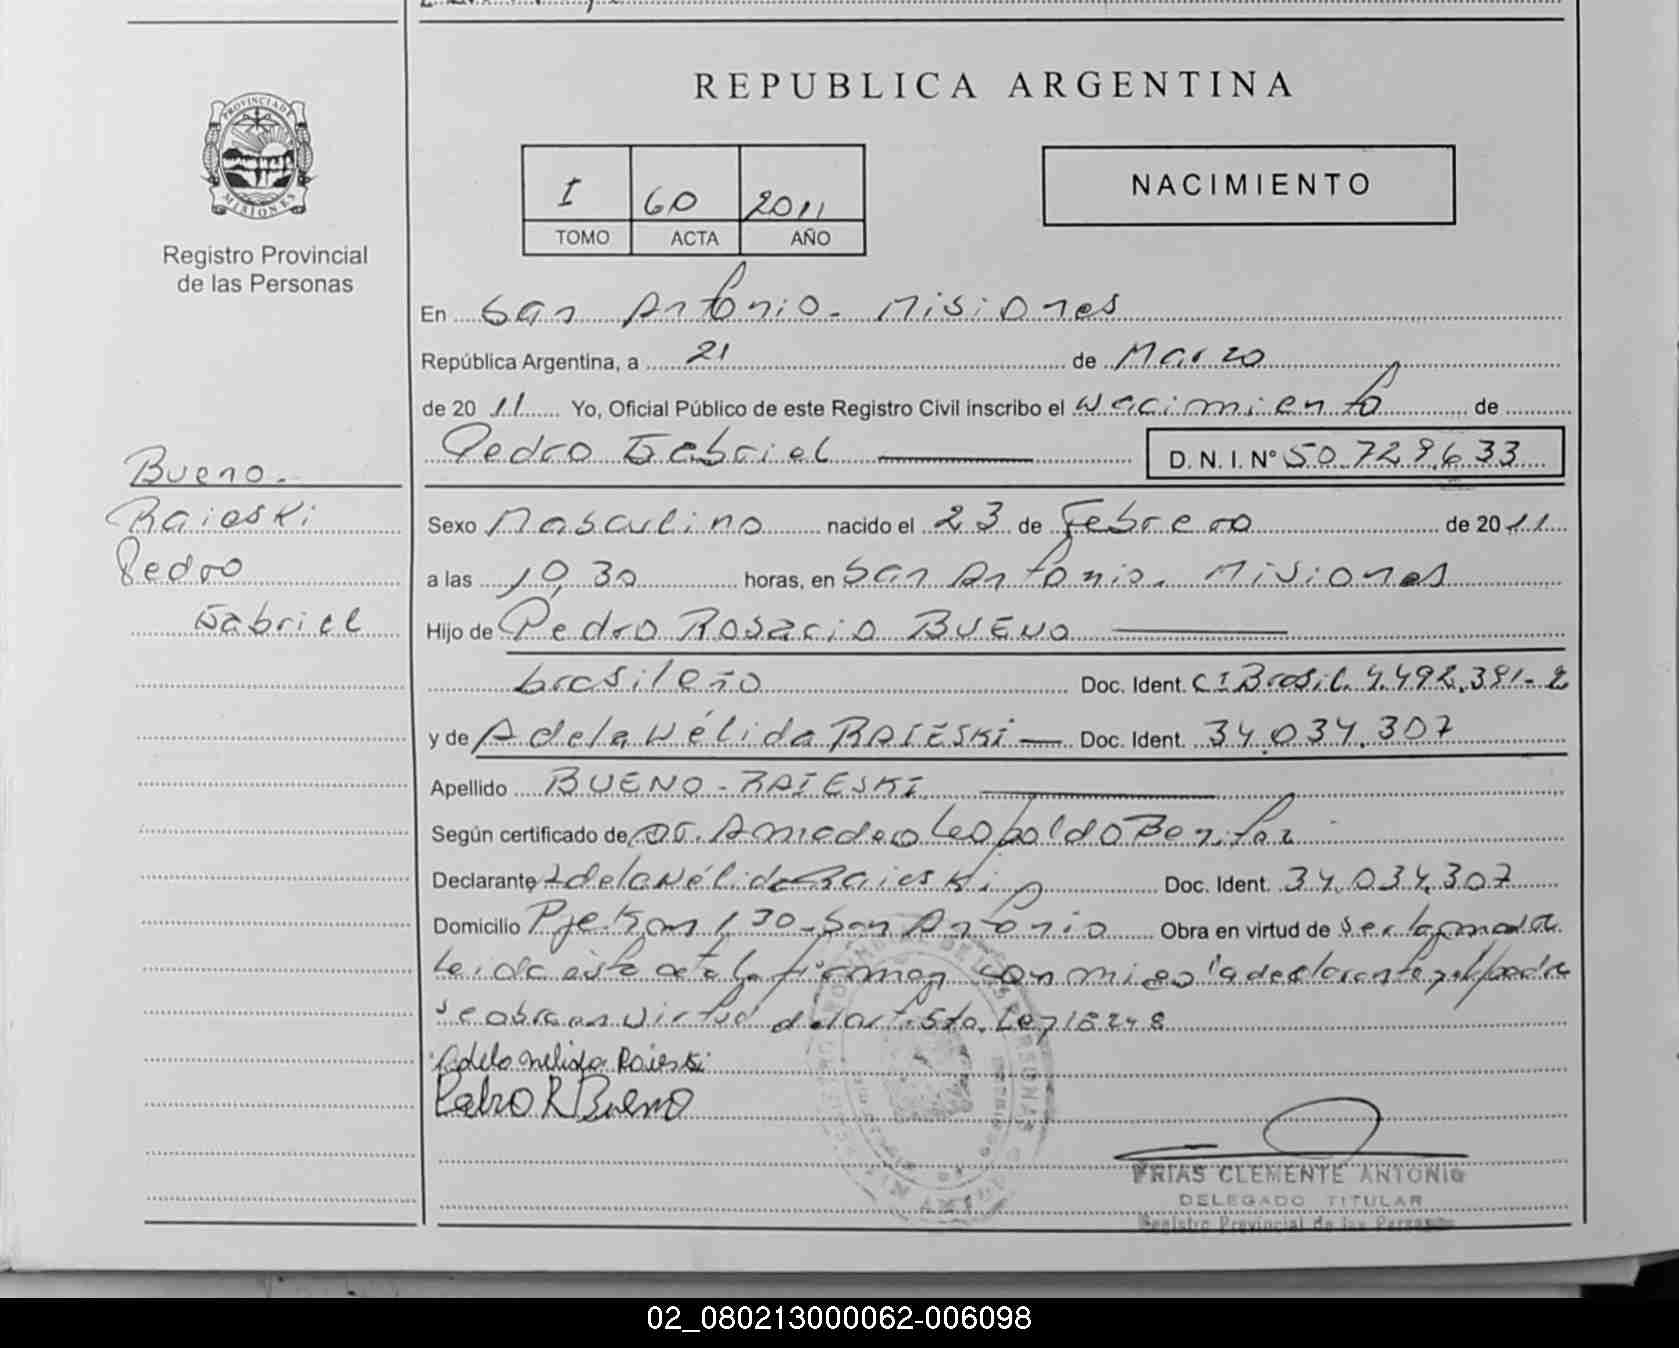 REPUBLICA ARGENTINA
PROVINCIA DE
MISIONES
Registro Provincial
de las Personas
I 60 2011
TOMO ACTA AÑO
NACIMIENTO
En San Antonio - Misiones
República Argentina, a 21 de Marzo
de 2011 Yo, Oficial Público de este Registro Civil inscribo el Nacimiento de
Pedro Gabriel D. N. I. Nº 50.729.633
Bueno -
Raieski
Pedro
Gabriel
Sexo Masculino nacido el 23 de Febrero de 2011
a las 10,30 horas, en San Antonio. Misiones
Hijo de Pedro Rosario BUENO
brasileño Doc. Ident. C I Brasil. 4.492.391-2
y de Adela Nélida RAIESKI — Doc. Ident. 34.034.307
Apellido BUENO - RAIESKI
Según certificado de Dr. Amadeo Leopoldo
Declarante Adela Nélida Raieski Doc. Ident. 34.034.307
Domicilio Pje. Km 130 - San Antonio Obra en virtud de ser la madre
Leida este acta la firman conmigo la declarante y el padre
se obra en virtud del art. 5to. Ley 18248
Adela Nelida Raieski
Pedro R Bueno
FRIAS CLEMENTE ANTONIO
DELEGADO TITULAR
Registro Provincial de las Personas
02_080213000062-006098